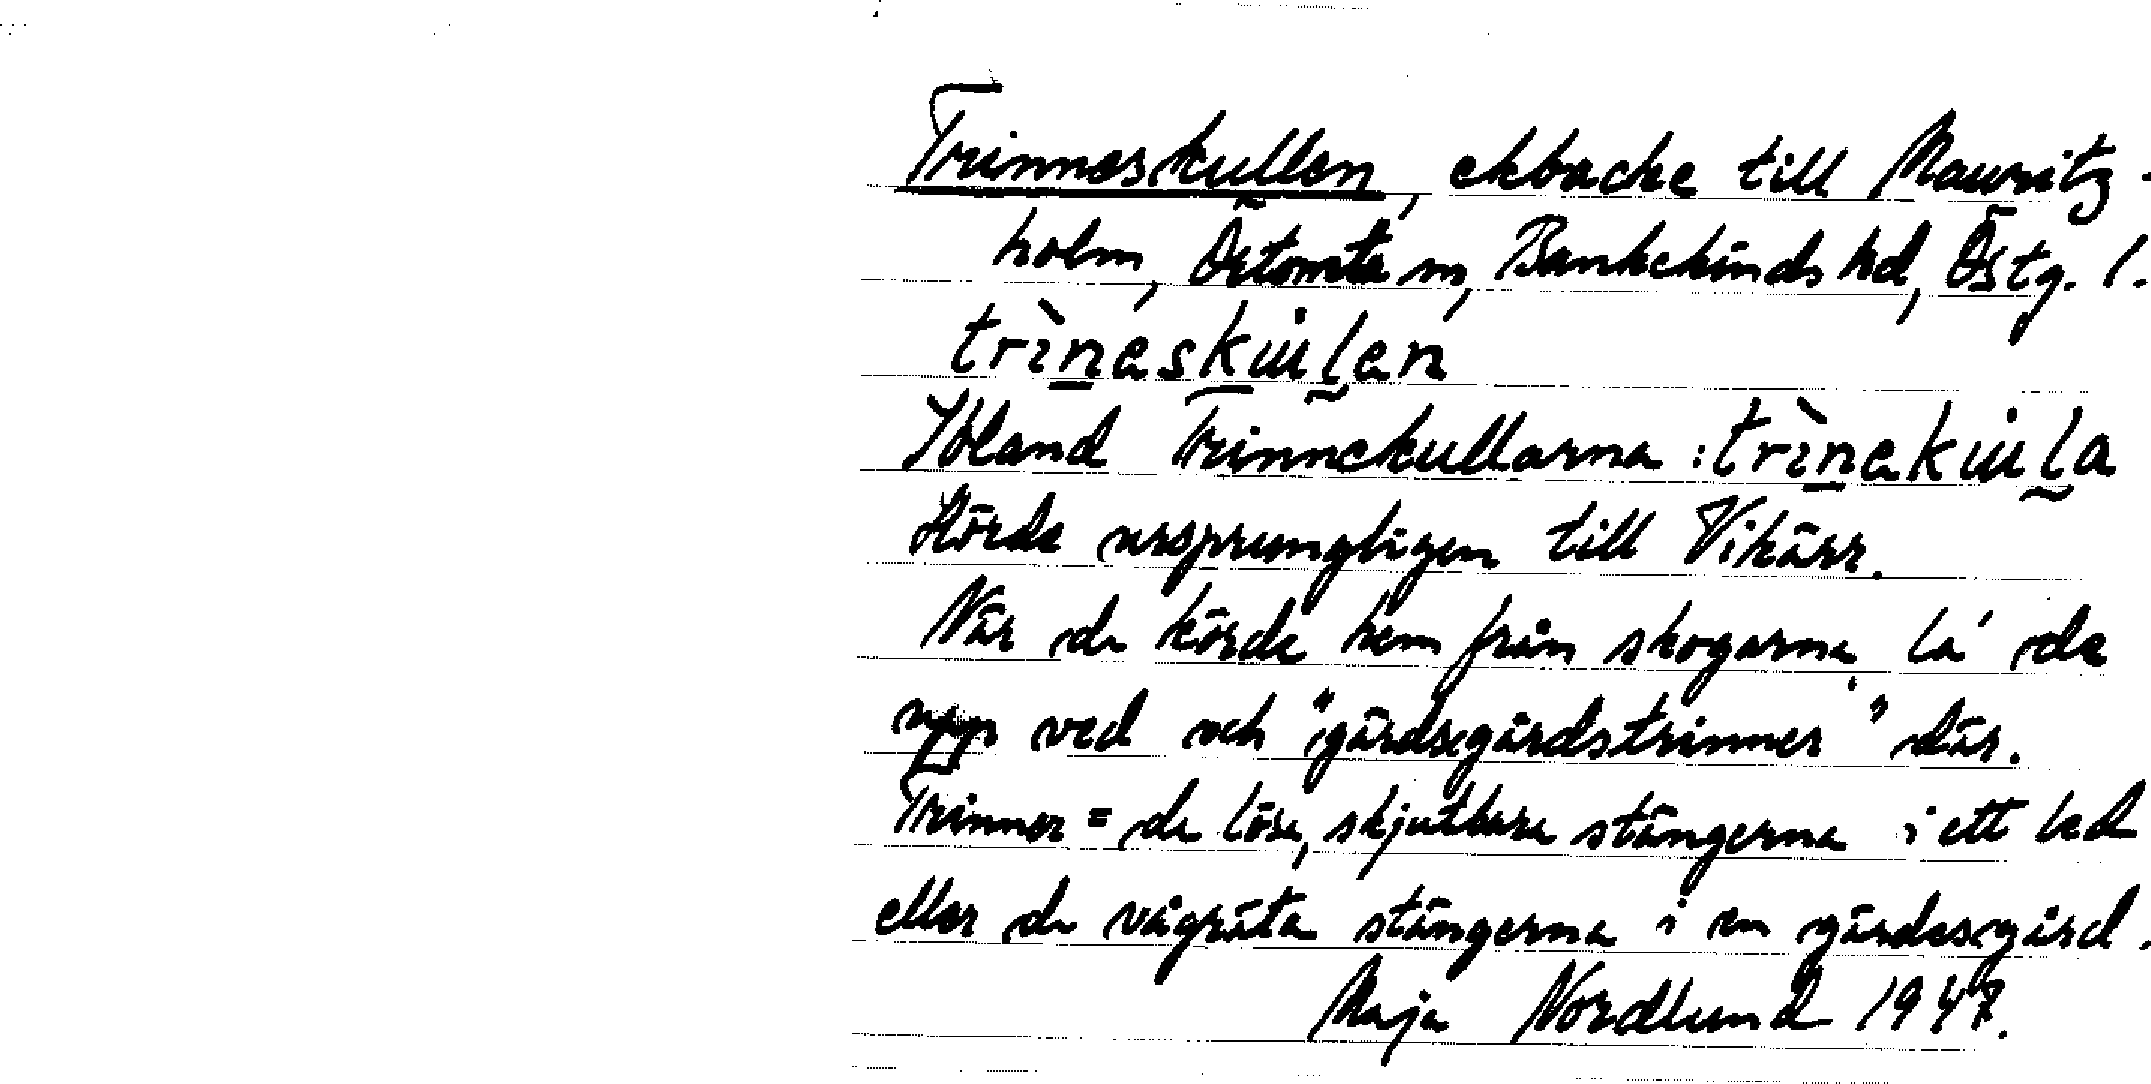 Trinneskullen, ekbacke till Mauritz-
holm, Östomta sn, Bankekinds hd, Östg. l.
trìneskuilen
Ibland Trinnekullarna : trìnekuila
Hörde ursprungligen till Vikärr.
När de körde hem från skogarna, la' de
upp ved och "gärdsegårdstrinner" där.
Trinner = de lösa, skjutbara stängerna i ett led
eller de vågräta stängerna i en gärdesgård.
Maja Nordlund 1947.